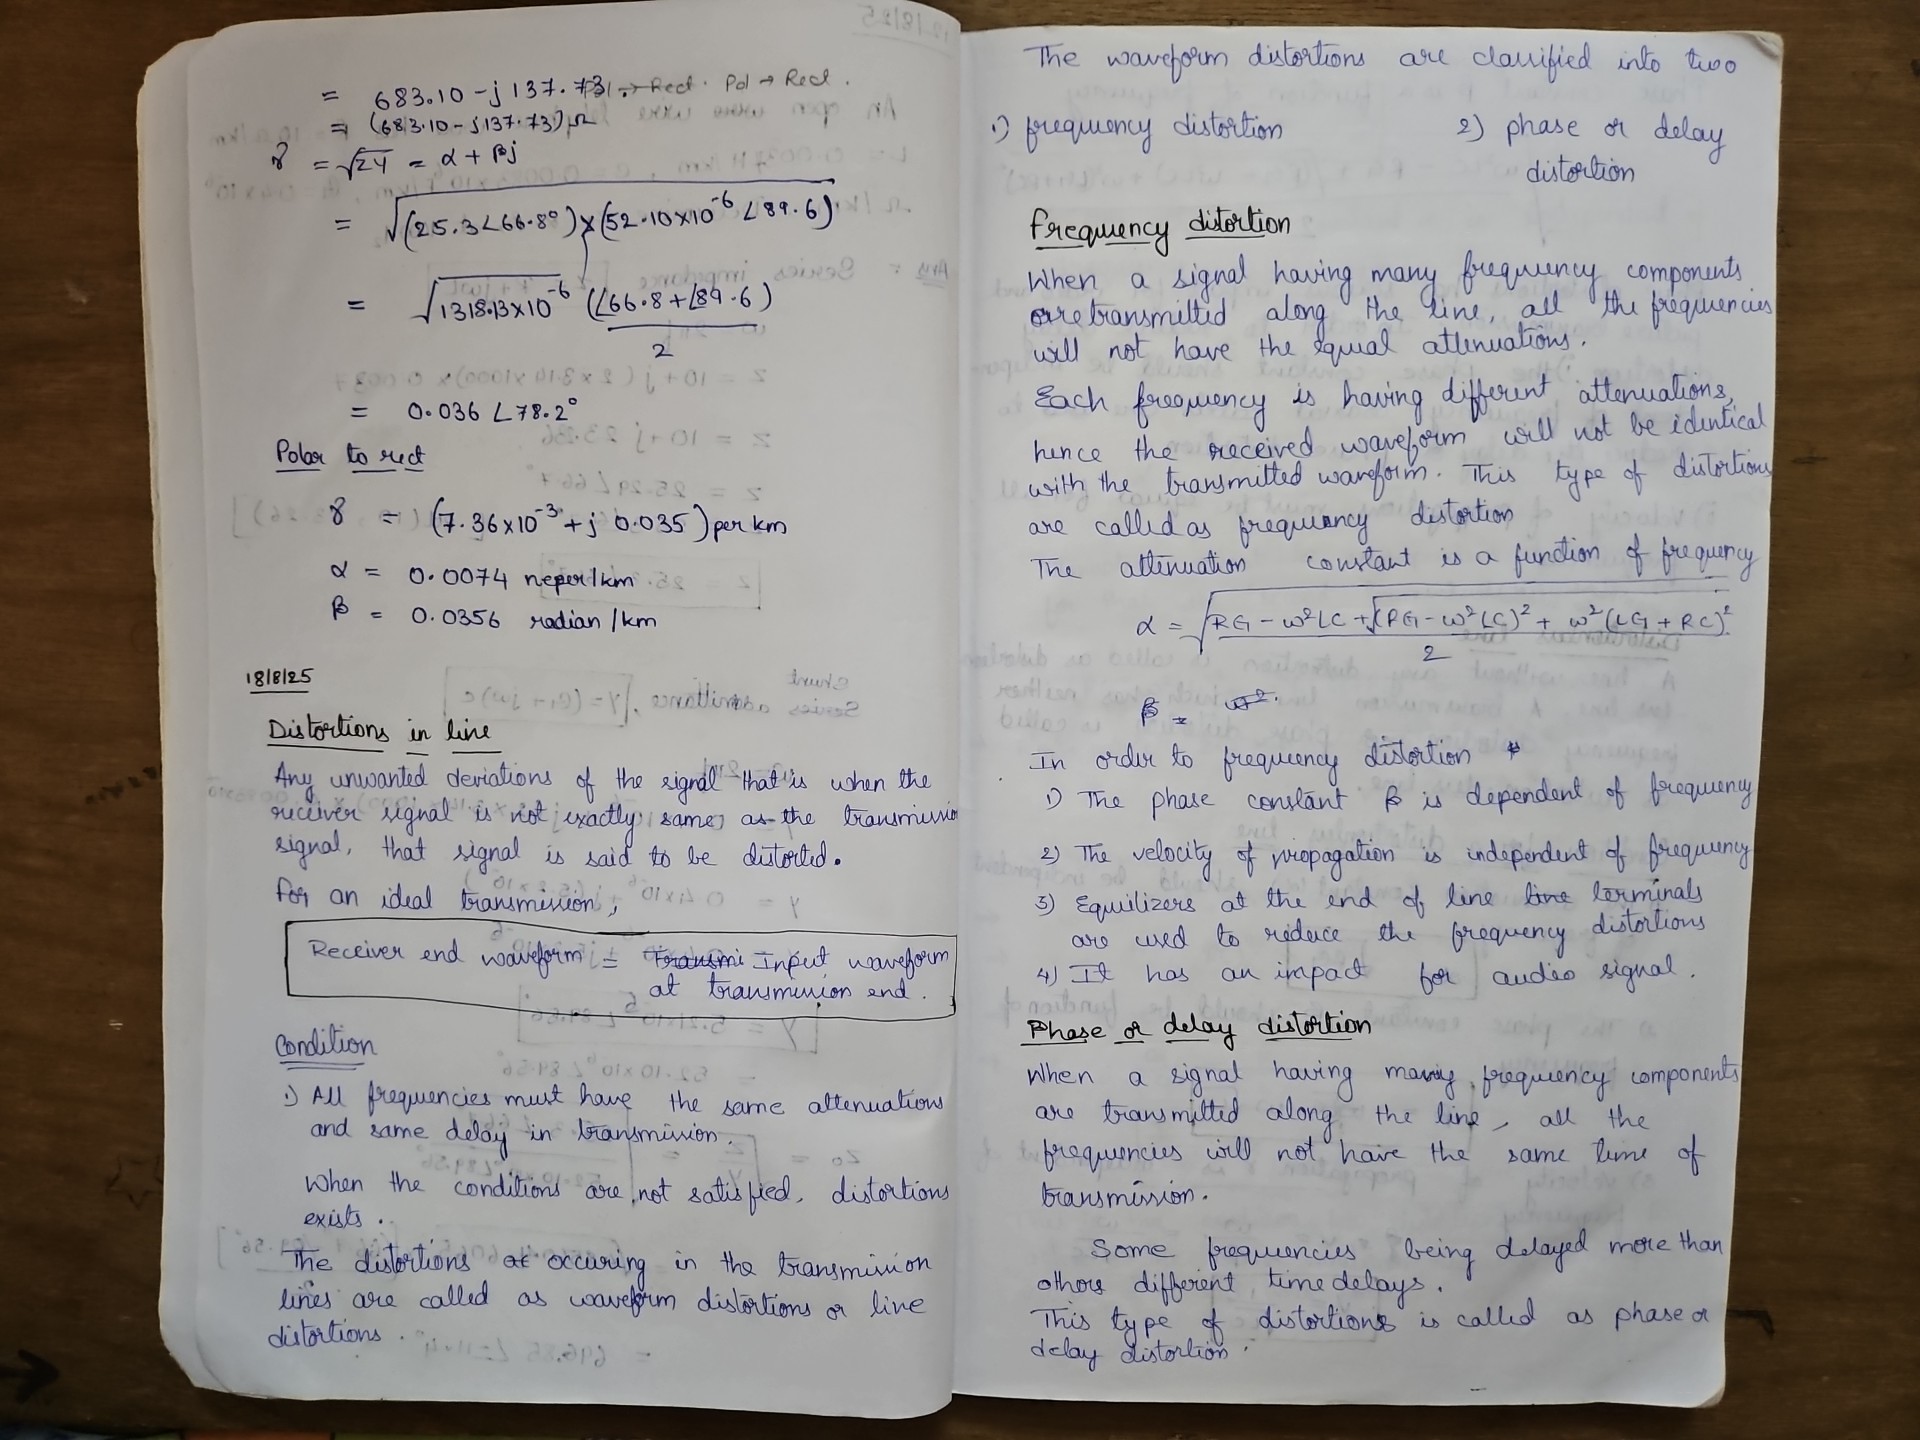 = 683.10 - j 137.73 Pol → Rect. Pol → Rect.
= (683.10 - j 137.73) Ω
γ = √ZY = α + βj
= √(25.3∠66.8°) × (52.10×10⁻⁶ ∠89.6)
= √1318.13×10⁻⁶ (∠66.8 + ∠89.6)
2
= 0.036 ∠78.2°
Polar to rect
γ = (7.36×10⁻³ + j 0.035) per km
α = 0.0074 neper/km
β = 0.0356 radian /km
18/8/25
Distortions in line
Any unwanted deviations of the signal that is when the
reciever signal is not exactly same as the transmission
signal, that signal is said to be distorted.
For an ideal transmission,
Receiver end waveform = Transmi Input waveform
at transmission end.
Condition
1) All frequencies must have the same attenuations
and same delay in transmission.
When the conditions are not satisfied, distortions
exists.
The distortions at occuring in the transmission
lines are called as waveform distortions or line
distortions.
The waveform distortions are classified into two
1) frequency distortion 2) phase or delay
distortion
Frequency distortion
When a signal having many frequency components
are transmitted along the line, all the frequencies
will not have the equal attenuations.
Each frequency is having different attenuations,
hence the received waveform will not be identical
with the transmitted waveform. This type of distortions
are called as frequency distortion
The attenuation constant is a function of frequency
α = √RG - ω²LC + √(RG - ω²LC)² + ω²(LG + RC)²
2
β = ω².
In order to frequency distortion
1) The phase constant β is dependent of frequency
2) The velocity of propagation is independent of frequency
3) Equilizers at the end of line line terminals
are used to reduce the frequency distortions
4) It has an impact for audio signal.
Phase or delay distortion
When a signal having many frequency components
are transmitted along the line, all the
frequencies will not have the same time of
transmission.
Some frequencies being delayed more than
others different time delays.
This type of distortions is called as phase or
delay distortion.